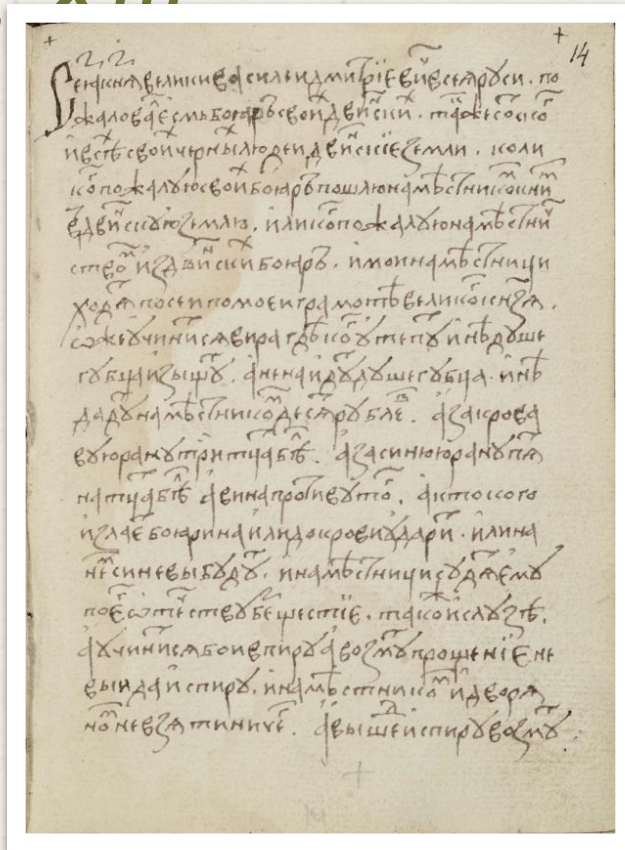 14
Се ꙗз кнѧз великии василеи дмитрїевич всеѧ руси. по
жаловал есмь боꙗръ своих двинских. також соцког
и всѣх своих черных людеи двинскїе земли. коли
ког пожалую своих боꙗръ пошлю намѣстником к ним
в двинскую землю. или ког пожалую намѣстни
ством из двинских боꙗръ. и мои намѣстници
ходѧт по сеи по моеи грамотѣ великог кнѧзѧ.
ѡже учинитсѧ вира гдѣ ког утепут инѣ душе
губца изыщут. а не наидут душегубца. инѣ
дадут намѣстником десѧт рублев. а за крова
вую рану тритцат бѣл. а за синюю рану пѧт
натцат бѣл а вина противу тог. а кто ког
излает боꙗрина или до крови ударит. или на
нем синевы будут. и намѣстници судѧт ему
по ег ѡтечеству бещестїе. також и слузѣ.
а учинитсѧ бои в пиру а возмут прощенїе не
выидѧ ис пиру. и намѣстником и дворѧ
ном не взѧти ничег. а вышед ис пиру возмут